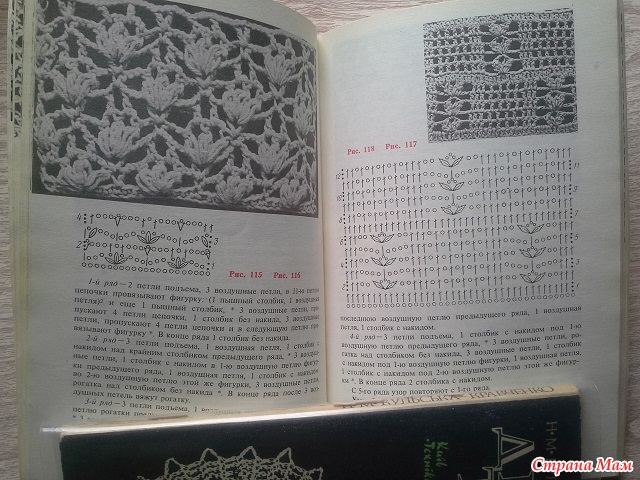 Рис. 115 Рис. 116
1-й ряд — 2 петли подъема, 3 воздушные петли, в 11-ю петлю
цепочки провязывают фигурку: (1 пышный столбик, 1 воздушная
петля)² и еще 1 пышный столбик, * 3 воздушные петли, про-
пускают 4 петли цепочки, 1 столбик без накида, 3 воздушные
петли, пропускают 4 петли цепочки и в следующую петлю про-
вязывают фигурку *. В конце ряда 1 столбик без накида.
2-й ряд — 3 петли подъема, 1 воздушная петля, 1 столбик с
накидом над крайним столбиком предыдущего ряда, * 3 воздуш-
ные петли, 1 столбик с накидом в 1-ю воздушную петлю фигурки
предыдущего ряда, 1 воздушная петля, 1 столбик с накидом во
2-ю воздушную петлю этой же фигурки, 3 воздушные петли,
рогатка над столбиком без накида *. В конце ряда после 3 воз-
душных петель вяжут рогатку.
3-й ряд — 3 петли подъема, 1 воздушная
петлю рогатки предыдущего
Рис. 118 Рис. 117
последнюю воздушную петлю предыдущего ряда, 1 воздушная
петля, 1 столбик с накидом.
4-й ряд — 3 петли подъема, 1 столбик с накидом под 1-ю
воздушную петлю предыдущего ряда, * 3 воздушные петли, ро-
гатка над столбиком без накида, 3 воздушные петли, 1 столбик
с накидом под 1-ю воздушную петлю фигурки, 1 воздушная петля,
1 столбик с накидом под 2-ю воздушную петлю этой же фигур-
ки *. В конце ряда 2 столбика с накидом.
С 5-го ряда узор повторяют с 1-го ряда.
Страна Мам